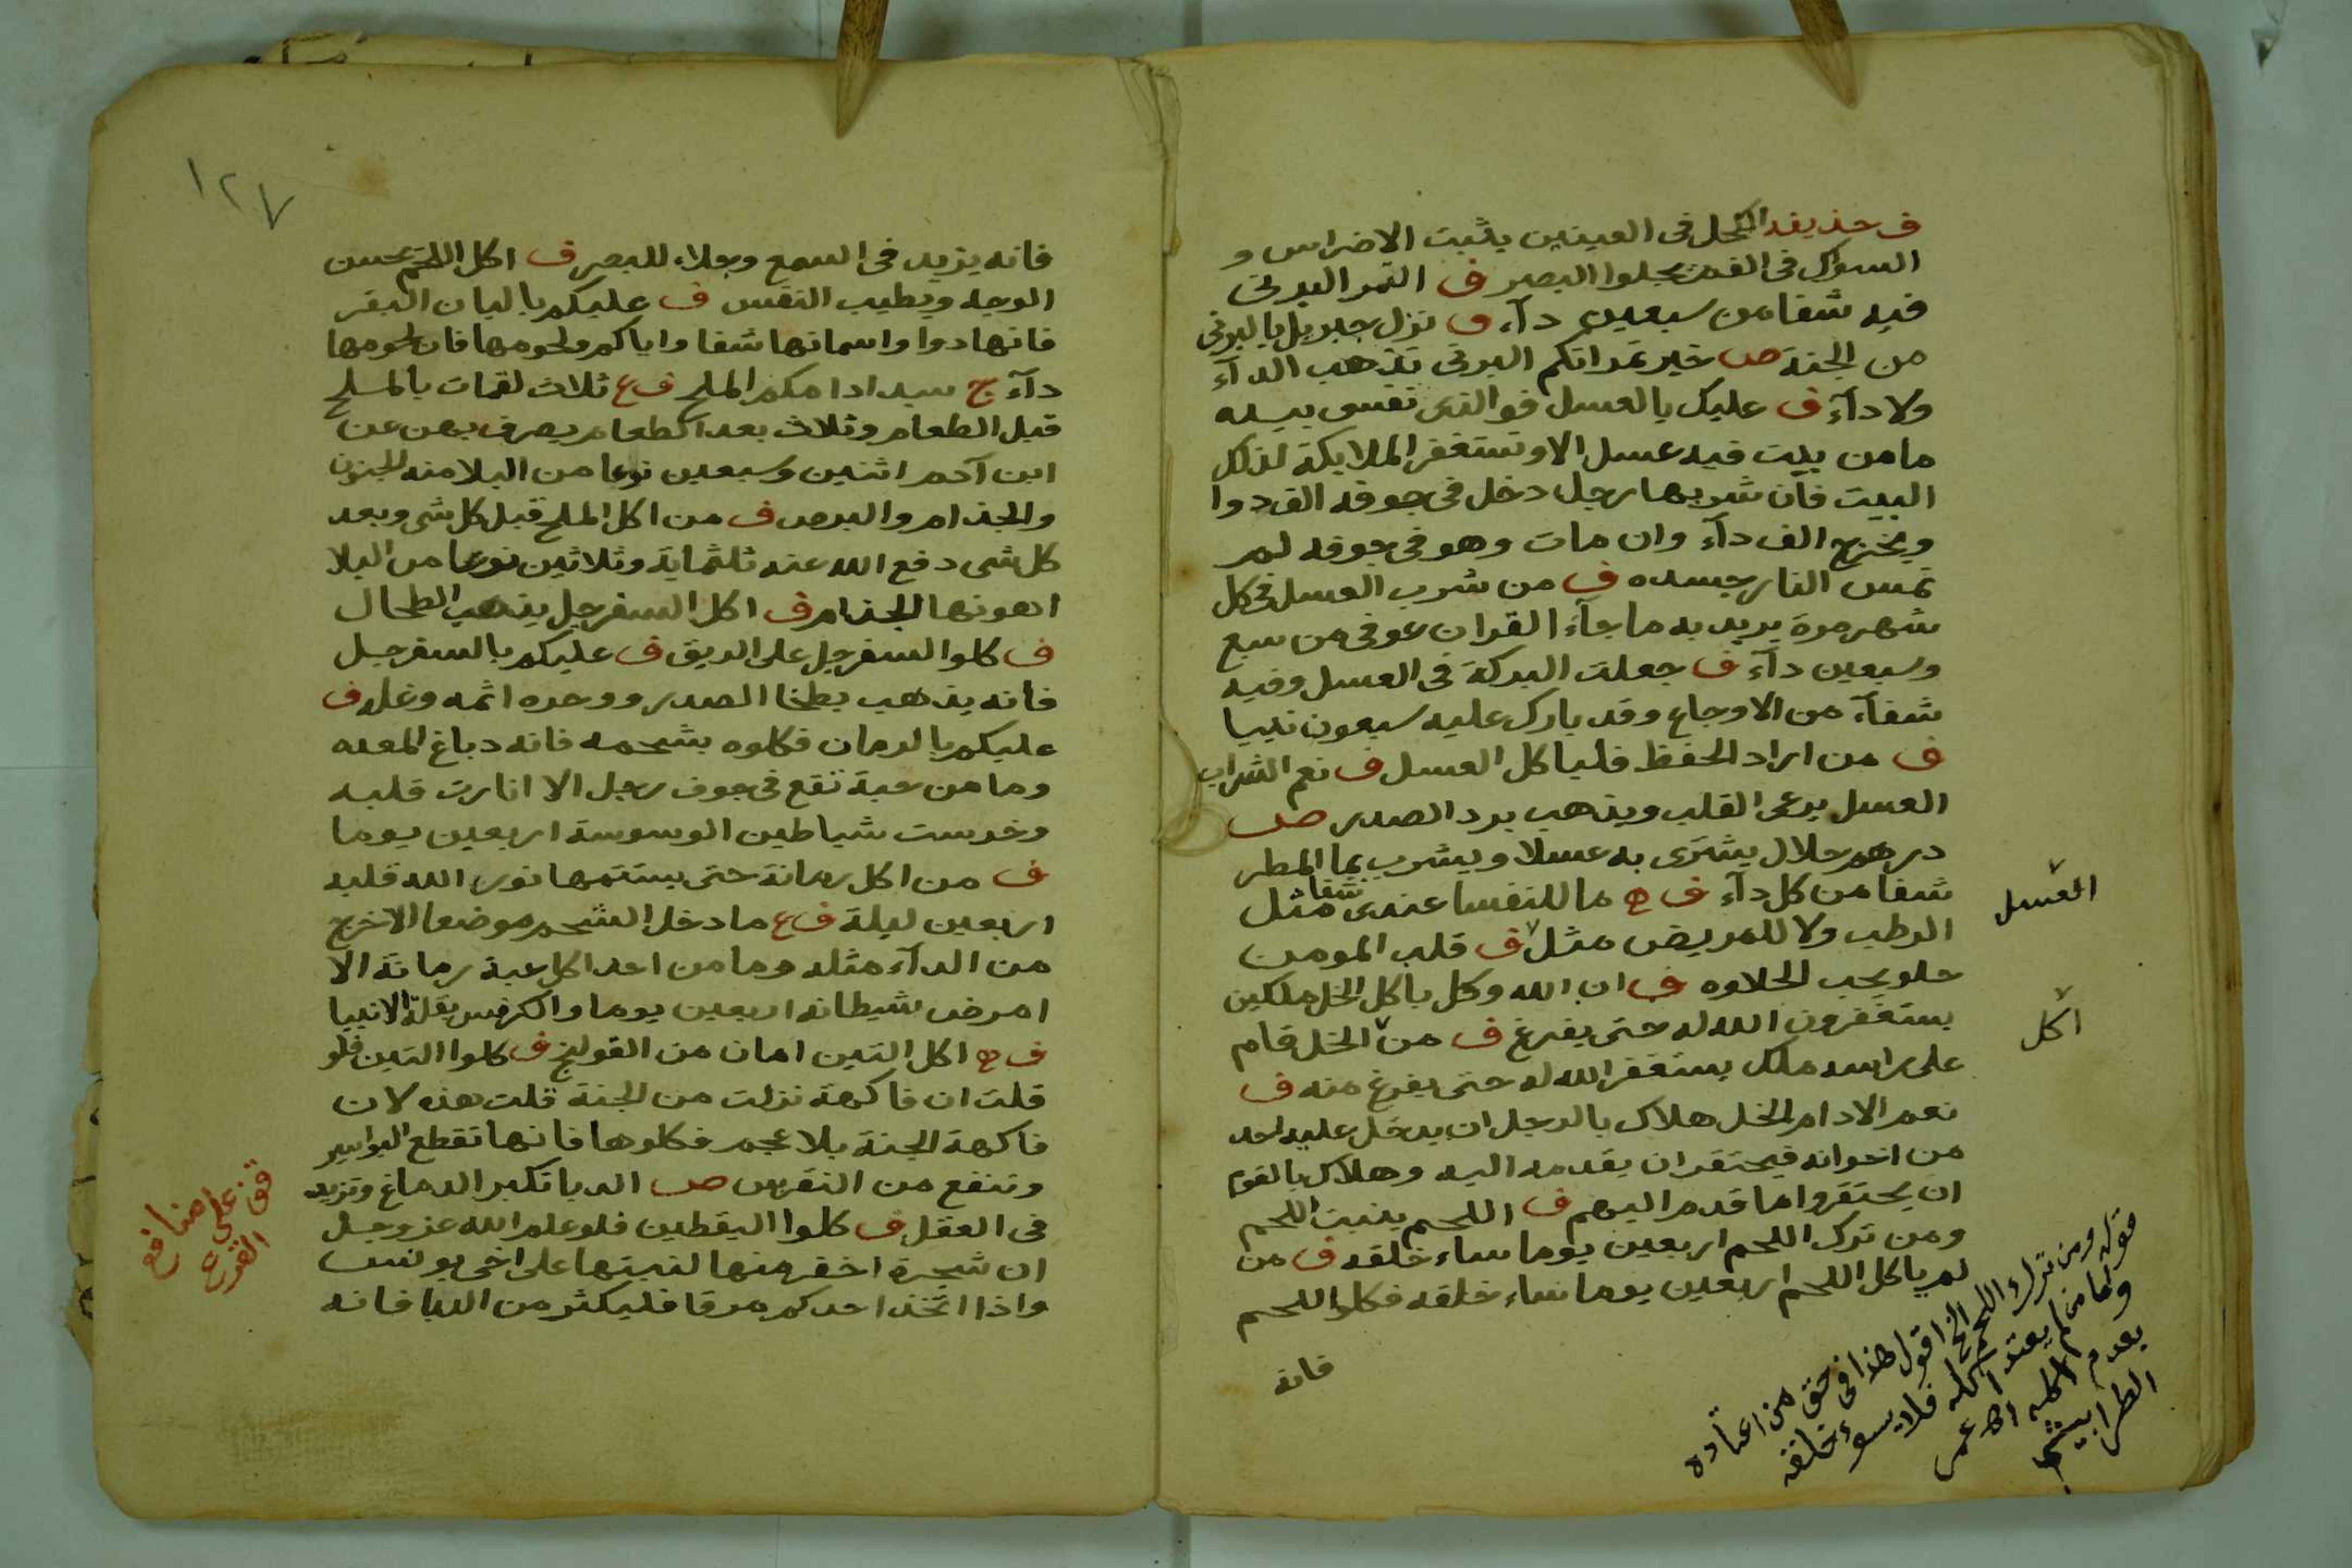 ف حذيفه الكحل فى العينين يثبت الاضراس و
السواك فى الفم يجلوا البصر ف التمر البرنى
فيه شفا من سبعين دآء ف نزل جبريل بالبرنى
من الجنة ص خير تمراتكم البرنى تذهب الدآء
ولا دآء ف عليك بالعسل فوالذى نفسى بيده
ما من بيت فيه عسل الا وتستغفر الملايكة لذلك
البيت فان شربها رجل دخل فى جوفه الف دوا
ويخرج الف دآء وان مات وهو فى جوفه لم
تمس النار جسده ف من شرب العسل فى كل
شهر مرة يريد به ما جآء القران عوفى من سبع
وسبعين دآء ف جعلت البركة فى العسل وفيه
شفآء من الاوجاع وقد بارك عليه سبعون نبيا
ف من اراد الحفظ فلياكل العسل ف نعم الشراب
العسل يرعى القلب ويذهب برد الصدر ص
درهم حلال يشترى به عسلا ويشرب بما المطر
شفا من كل دآء ف ه ما للنفسا عندى شفا مثل
الرطب ولا للمريض مثل ف قلب المومن
حلو يحب الحلاوه ف ان الله وكل باكل الخل ملكين
يستغفرون الله له حتى يفرغ ف من الخل قام
على راسه ملك يستغفر الله له حتى يفرغ منه ف
نعم الادام الخل هلاك بالرجل ان يدخل عليه احد
من اخوانه فيحتقر ان يقدمه اليه وهلاك بالقوم
ان يحتقروا ما قدم اليهم ف اللحم ينبت اللحم
ومن ترك اللحم اربعين يوما ساء خلقه ف من
لم ياكل اللحم اربعين يوما ساء خلقه فكلوا اللحم
فانه
العسل
اكل
قوله ومن ترك اللحم الخ اقول هذا فى حق من اعتاده
واما من لم يعتد اكله فلا يسوء خلقه
بعدم اكله اه عمر
الطرابيشى
١٢٧
فانه يزيد فى السمع وجلاء للبصر ف اكل اللحم يحسن
الوجه ويطيب النفس ف عليكم بالبان البقر
فانها دوا واسمانها شفا واياكم ولحومها فان لحومها
دآء ج سيد ادامكم الملح ف ع ثلاث لقمات بالملح
قبل الطعام وثلاث بعد الطعام يصرف بهن عن
ابن آدم اثنين وسبعين نوعا من البلا منه الجنون
والجذام والبرص ف من اكل الملح قبل كل شى وبعد
كل شى دفع الله عنه ثلثماية وثلاثين نوعا من البلا
اهونها الجذام ف اكل السفرجل يذهب الطحال
ف كلوا السفرجل على الريق ف عليكم بالسفرجل
فانه يذهب بطخا الصدر ووحره اثمه وغله ف
عليكم بالرمان فكلوه بشحمه فانه دباغ المعده
وما من حبة تقع فى جوف رجل الا انارت قلبه
وخرست شياطين الوسوسة اربعين يوما
ف من اكل رمانة حتى يستتمها نور الله قلبه
اربعين ليلة ف ع ما دخل الشحم موضعا الا خرج
من الدآء مثله وما من احد اكل حبة رمانة الا
امرض شيطانه اربعين يوما والكرفس بقلة الانبيا
ف ه اكل التين امان من القولنج ف كلوا التين فلو
قلت ان فاكهة نزلت من الجنة قلت هذه لان
فاكهة الجنة بلا عجم فكلوها فانها تقطع البواسير
وتنفع من النقرس ص الدبا تكبر الدماغ وتزيد
فى العقل ف كلوا اليقطين فلو علم الله عز وجل
ان شجرة اخف منها لنبتها على اخى يونس
واذا اتخذ احدكم مرقا فليكثر من الدبا فانه
قف على منافع
القرع